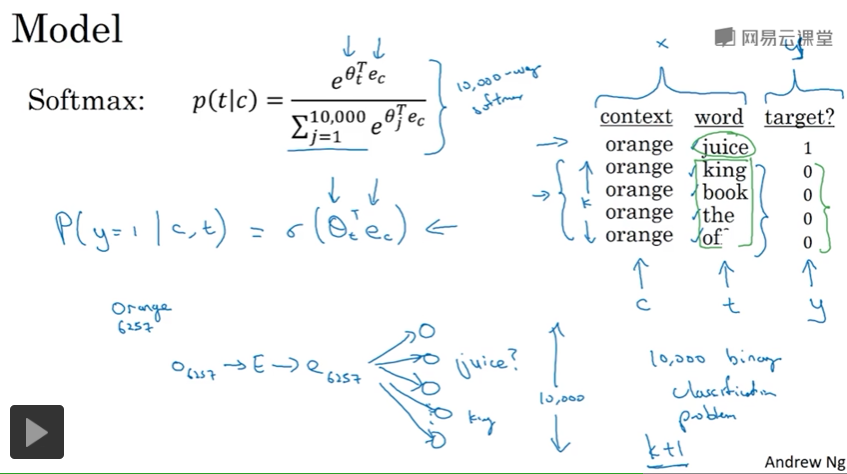 Model
网易云课堂
x
y
Softmax: p(t|c) = e^{θ_t^T e_c} / Σ_{j=1}^{10,000} e^{θ_j^T e_c}
10,000-way
softmax
context word target?
orange juice 1
orange king 0
orange book 0
orange the 0
orange of 0
k
P(y=1 | c,t) = σ(θ_t^T e_c)
c t y
Orange
6257
o_6257 → E → e_6257
juice?
king
10,000
10,000 binary
classification
problem
k+1
Andrew Ng